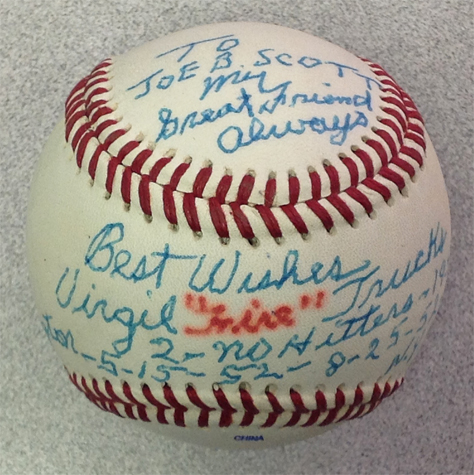 TO
JOE B. SCOTT
My
Great Friend
Always
Best Wishes
Virgil "Fire" Trucks
2-NO Hitters-19
-5-15-52-8-25-5
CHINA